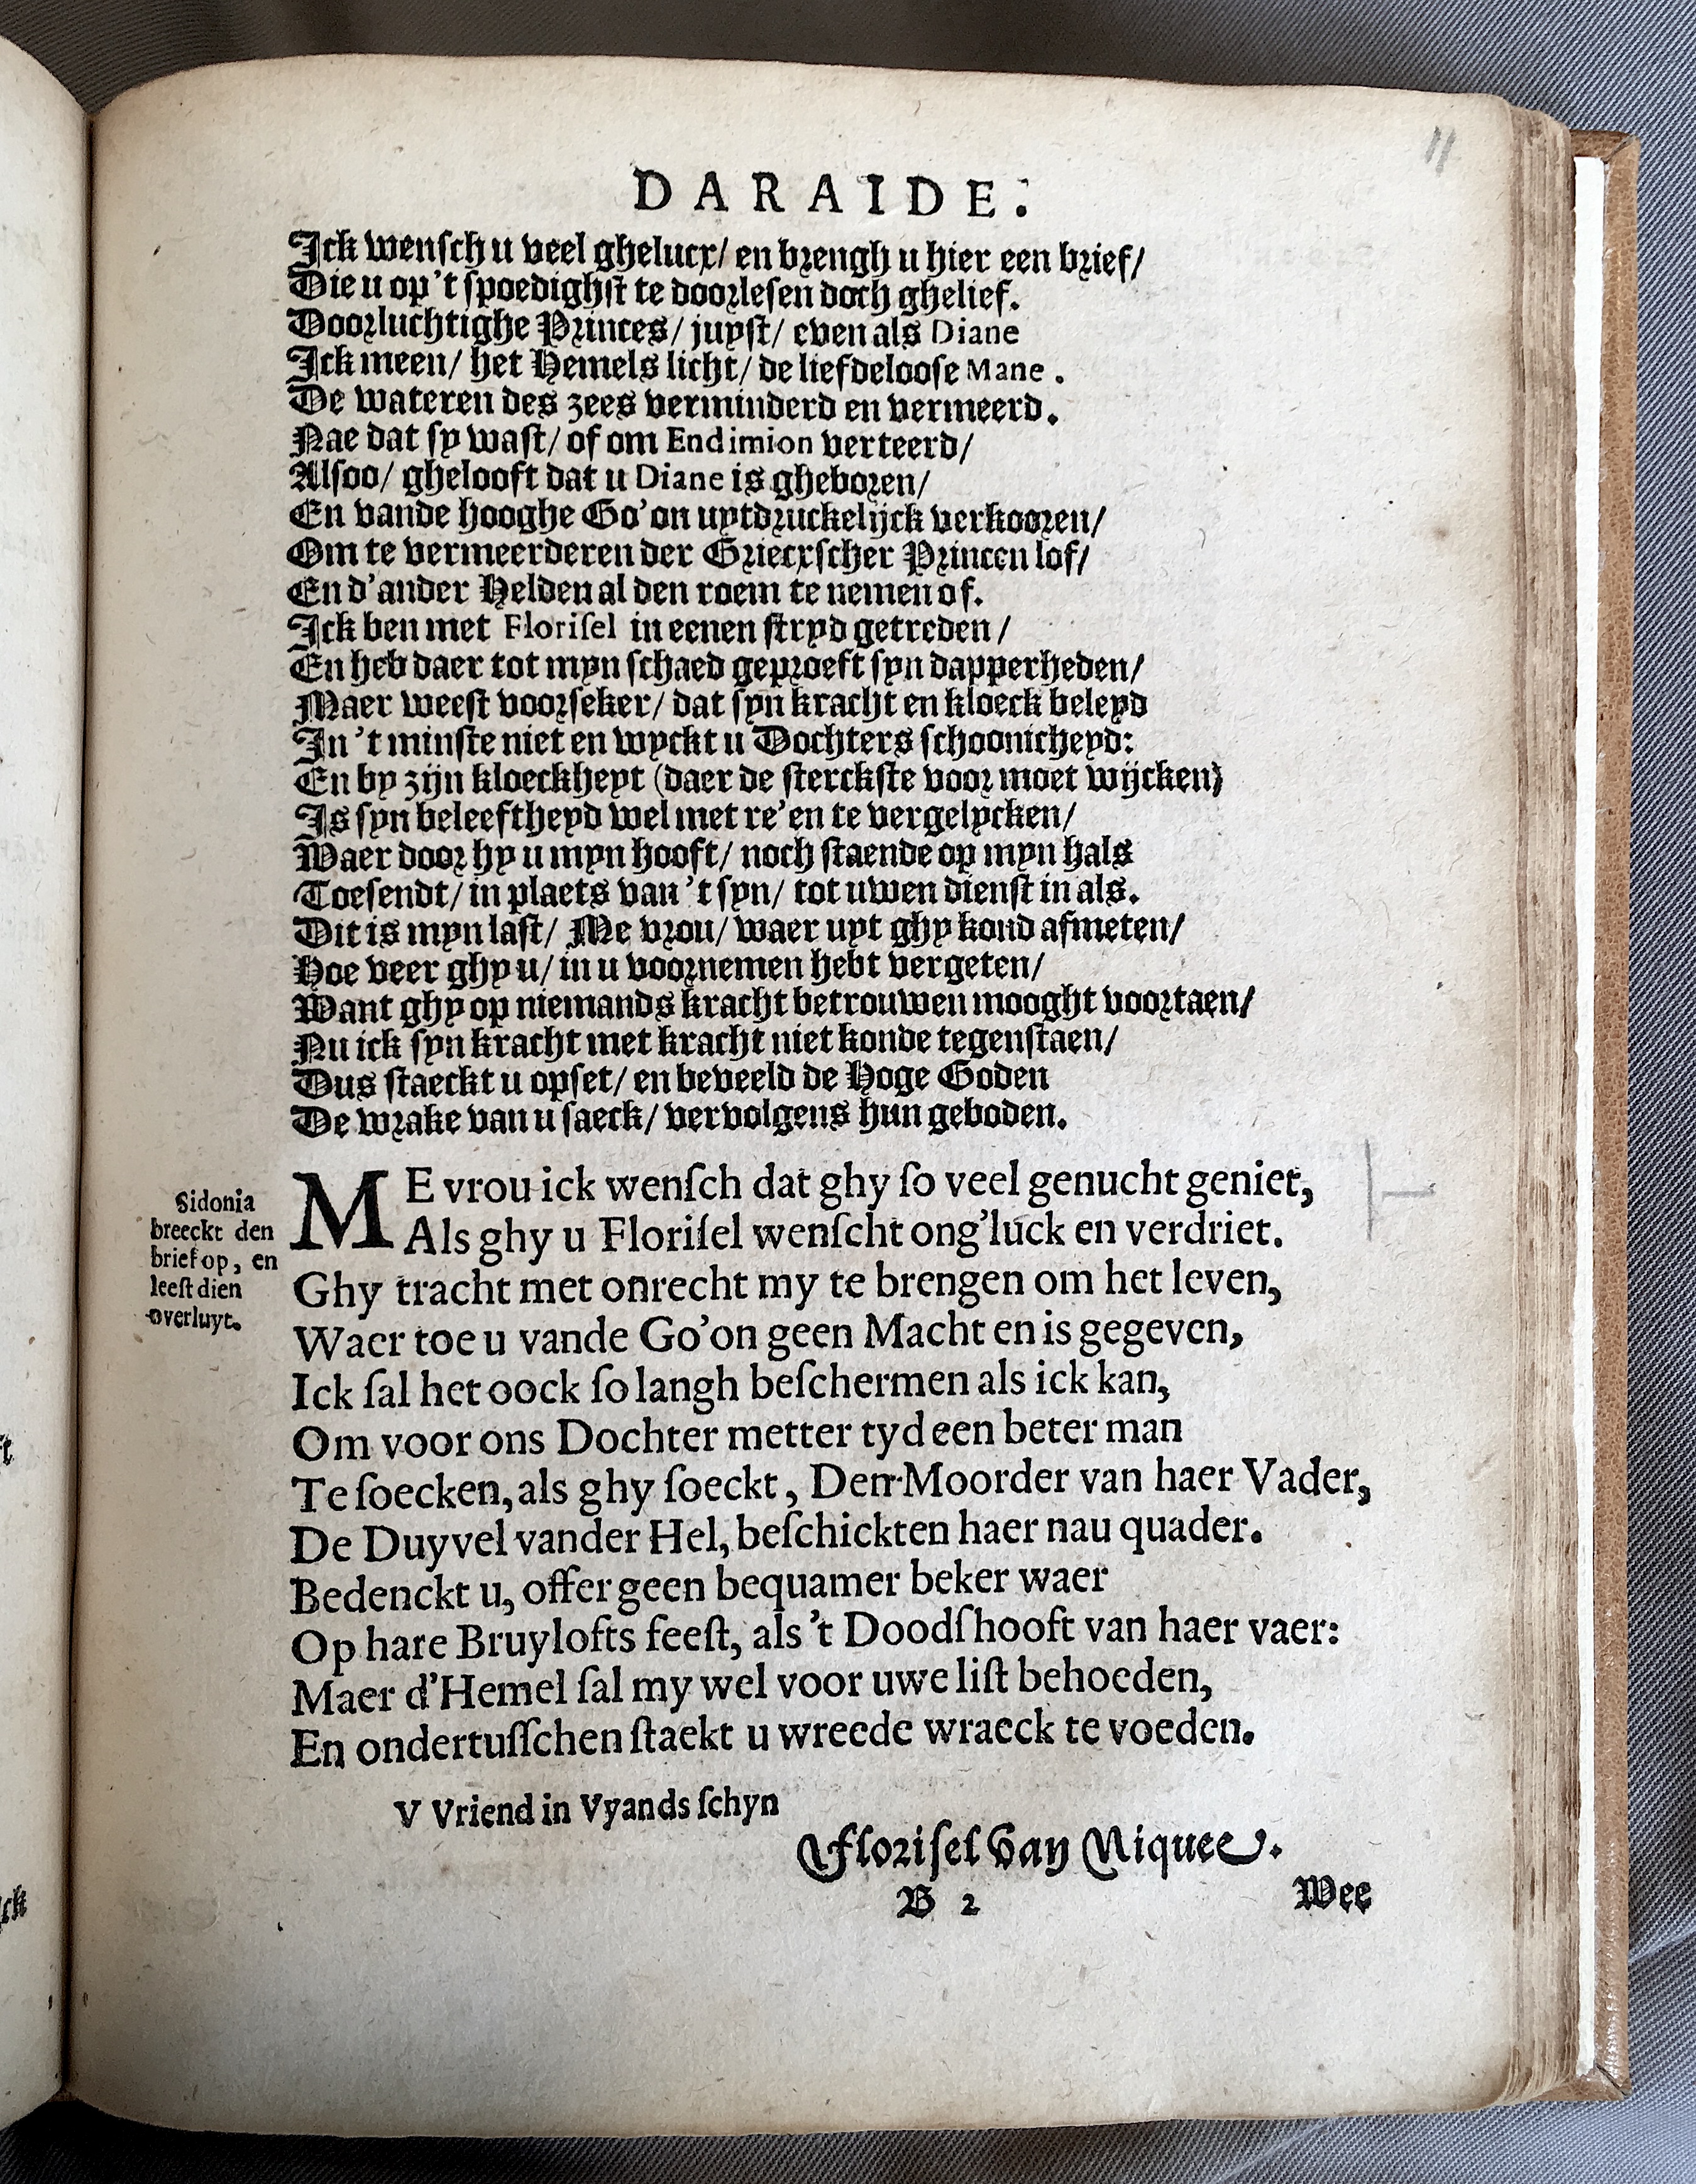 11
DARAIDE.
Ick wensch u veel ghelucx/ en brengh u hier een brief/
Die u op 't spoedighst te doorlesen doch ghelief.
Doorluchtighe Princes/ juyst/ even als Diane
Ick meen/ het Hemels licht/ de liefdeloose Mane.
De wateren des zees verminderd en vermeerd.
Nae dat sy wast/ of om Endimion verteerd/
Alsoo/ ghelooft dat u Diane is gheboren/
En vande hooghe Go'on uytdruckelijck verkooren/
Om te vermeerderen der Griecxscher Princen lof/
En d'ander Helden al den roem te nemen of.
Ick ben met Floriſel in eenen stryd getreden/
En heb daer tot myn schaed geproeft syn dapperheden/
Maer weest voorseker/ dat syn kracht en kloeck beleyd
In 't minste niet en wyckt u Dochters schoonicheyd:
En by zijn kloeckheyt (daer de sterckste voor moet wijcken)
Is syn beleeftheyd wel met re'en te vergelycken/
Waer door hy u myn hooft/ noch staende op myn hals
Toesendt/ in plaets van 't syn/ tot uwen dienst in als.
Dit is myn last/ Me vrou/ waer uyt ghy kond afmeten/
Hoe veer ghy u/ in u voornemen hebt vergeten/
Want ghy op niemands kracht betrouwen mooght voortaen/
Nu ick syn kracht met kracht niet konde tegenstaen/
Dus staeckt u opset/ en beveeld de Hoge Goden
De wrake van u saeck/ vervolgens hun geboden.
Sidonia
breeckt den
brief op, en
leeſt dien
overluyt.
ME vrou ick wenſch dat ghy ſo veel genucht geniet,
Als ghy u Floriſel wenſcht ong'luck en verdriet.
Ghy tracht met onrecht my te brengen om het leven,
Waer toe u vande Go'on geen Macht en is gegeven,
Ick ſal het oock ſo langh beſchermen als ick kan,
Om voor ons Dochter metter tyd een beter man
Te ſoecken, als ghy ſoeckt, Den Moorder van haer Vader,
De Duyvel vander Hel, beſchickten haer nau quader.
Bedenckt u, offer geen bequamer beker waer
Op hare Bruylofts feeſt, als 't Doodſhooft van haer vaer:
Maer d'Hemel ſal my wel voor uwe liſt behoeden,
En ondertuſſchen ſtaekt u wreede wraeck te voeden.
V Vriend in Vyands ſchyn
Floriſel van Niquee.
B 2
Wee